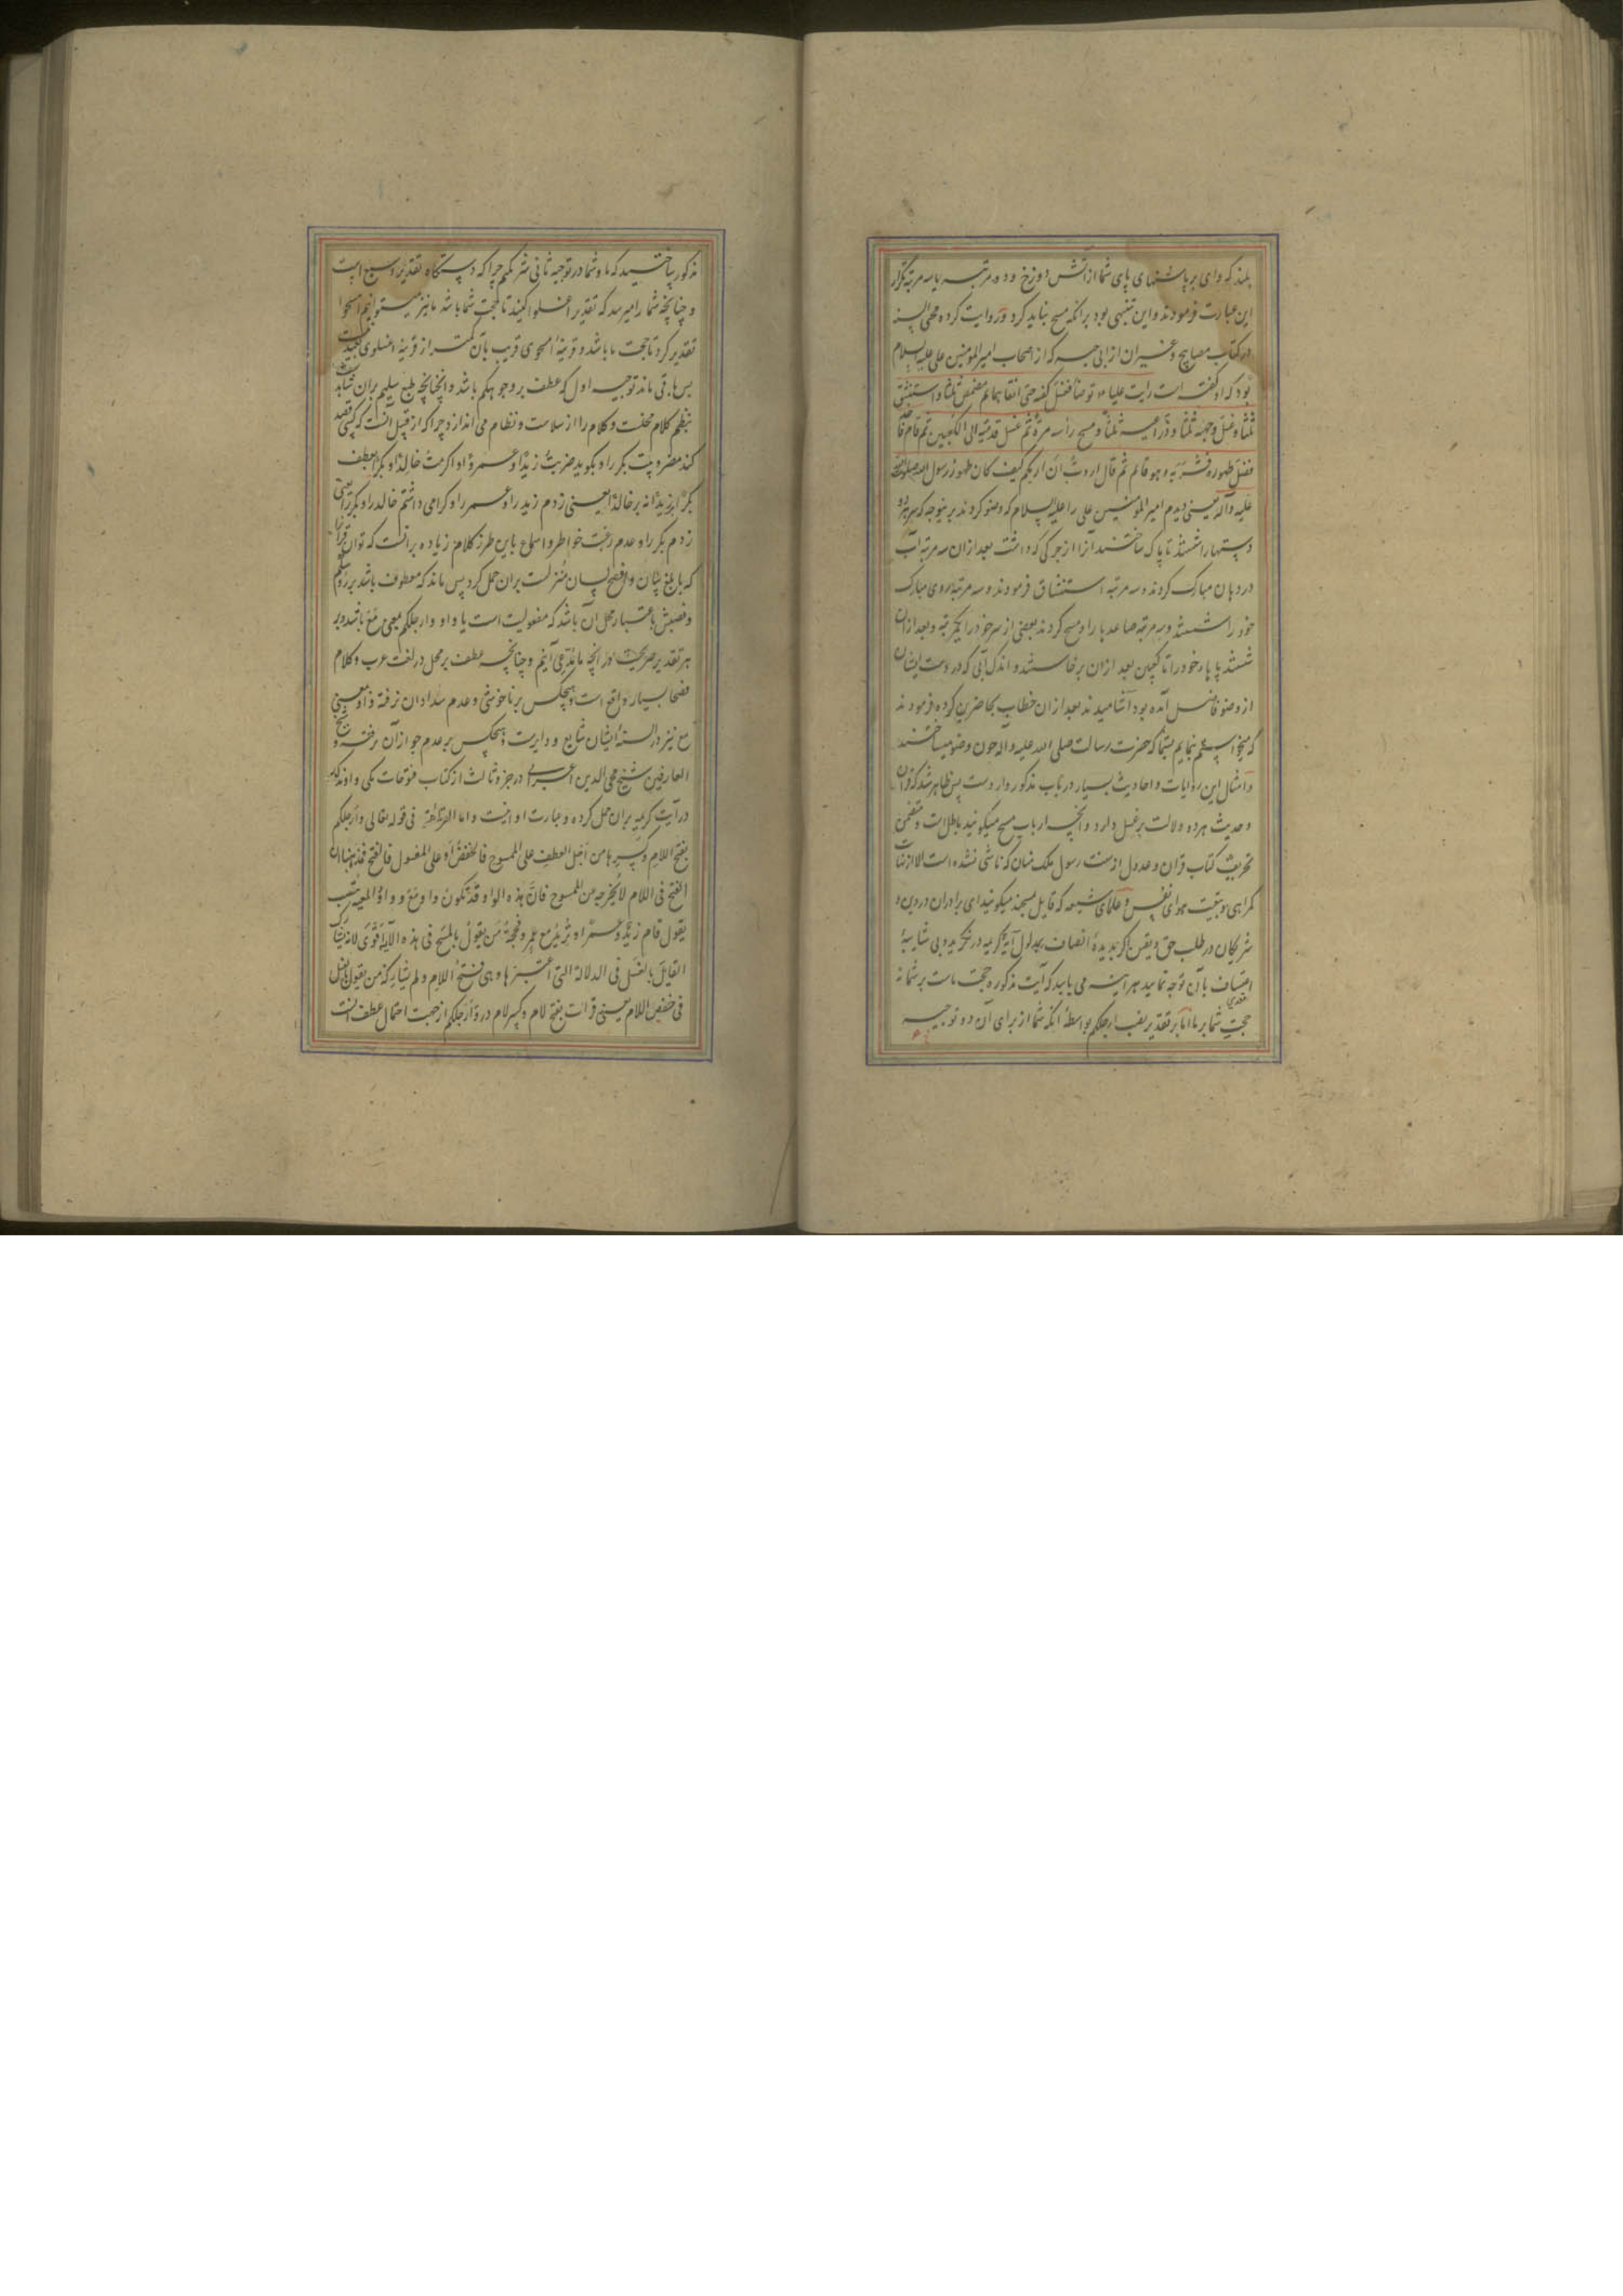 بلند که وای بر پاشنهای پای شما از آتش دوزخ و دو مرتبه یا سه مرتبه تکرار
این عبارت فرمودند و این تنبیهی بود بر آنکه مسح نباید کرد و روایت کرده محی السنه
در کتاب مصابیح و غیر آن از ابی حیه که از اصحاب امیرالمومنین علی علیه السلام
بود که او گفته است رایت علیا توضأ فغسل کفیه حتی انقاهما ثم مضمض ثلثا و استنشق
ثلثا و غسل وجهه ثلثا و ذراعیه ثلثا و مسح رأسه مرة ثم غسل قدمیه الی الکعبین ثم قام فاخذ
فضل طهوره فشربه و هو قائم ثم قال اردت أن اریکم کیف کان طهور رسول الله صلی الله
علیه و آله یعنی دیدم امیر المومنین علی را علیه السلام که وضو کردند برینوجه که هر دو
دستها را شستند تا پاک ساختند آنرا از چرکی که داشت بعد از آن سه مرتبه آب
در دهان مبارک کردند و سه مرتبه استنشاق فرمودند و سه مرتبه روی مبارک
خود را شستند و سه مرتبه ساعدها را و مسح کردند بعضی از سر خود را یکمرتبه و بعد از آن
شستند پاها خود را تا کعبین بعد از آن برخاستند و اندک آبی که در دست ایشان
از وضو فاضل آمده بود آشامیدند بعد از آن خطاب بحاضرین کرده فرمودند
که میخواستم بنمایم بشما که حضرت رسالت صلی الله علیه و آله چون وضو میساختند
و امثال این روایات و احادیث بسیار در باب مذکور وارد است پس ظاهر شد که قرآن
و حدیث هر دو دلالت بر غسل دارد و آنچه ارباب مسح میگویند باطل است و متضمن
تحریف کتاب قرآن و عدول از سنت رسول ملک منان که ناشی نشده است الا از غایت
گمراهی و تبعیت هوای نفس و علمای شیعه که قایل بمسحند میگویند ای برادران در دین و
شریکان در طلب حق و یقین اگر بدیده انصاف بمدلول آیه کریمه در نگرید و بی شایبه
اعتساف بآن توجه نمایید هر آینه می یابید که آیت مذکوره حجت ماست بر شما نه
حجت شما بر ما اما بر تقدیر نصب ارجلکم بواسطه آنکه شما از برای آن دو توجیه
مذکور ساختید که ما و شما در توجیه ثانی شریکیم چرا که دستگاه تقدیر وسیع است
و چنانچه شما را میرسد که تقدیر اغسلوا کنید تا حجت شما باشد ما نیز میتوانیم امسحوا
تقدیر کرد تا حجت ما باشد و قرینهٔ امسحوی قریب بآن کمتر از قرینهٔ اغسلوی بعید نیست
پس باقی ماند توجیه اول که عطف بر وجوهکم باشد و آنچنانچه طبع سلیم بران شاهد است
بنظم کلام مخلست و کلام را از سلاست و نظام می اندازد چرا که از قبیل آنست که کسی قصد
کند مضروبیت بکر را و بگوید ضربتُ زیدًا و عمرًوا و اکرمتُ خالدًا و بکرًا بعطف
بکرًا بر زیدًا نه بر خالدًا یعنی زدم زید را و عمرو را و گرامی داشتم خالد را و بکر را یعنی
زدم بکر را و عدم رغبت خواطر و اسماع باین طرز کلام زیاده بر آنست که توان قرآن را
که بابلغ بیان و افصح لسان منزلست بران حمل کرد پس ماند که معطوف باشد بر رؤسکم
و نصبش باعتبار محل آن باشد که مفعولیت است یا واو و ارجلکم بمعنی مَعَ باشد و بر
هر تقدیر صریحیست در آنچه ما بر آنیم و چنانچه عطف بر محل در لغت عرب و کلام
فصحا بسیار واقع است و هیچکس بر ناخوشی و عدم سداد آن نرفته واو بمعنی
مع نیز در السنهٔ ایشان شایع و دایرست و هیچکس بر عدم جواز آن نرفته و شیخ
العارفین شیخ محی الدین اعرابی در جزو ثالث از کتاب فتوحات مکی واو مذکور
در آیت کریمه بران حمل کرده و عبارت او اینست و اما القراءة فی قوله تعالی و أرجلکم
بفتح اللام و کسرها من أجل العطف علی الممسوح فالخفض أو علی المغسول فالفتح فمذهبنا ان
الفتح فی اللام لا یخرجه عن الممسوح فانّ هذه الواو قد تکون واو مَعَ و واو المعیة تنصب
یقول قام زیدٌ و عمرًا و تُرید مع عمرو فحجة من یقول بالمسح فی هذه الآیة اقوی لانه یشارک
القایل بالغسل فی الدلالة التی اعتبرها و هی فتح اللام و لم یشارکه من یقول بالغسل
فی خفض اللام یعنی قرائت بفتح لام و کسر لام در و أرجلکم از جهت احتمال عطف است